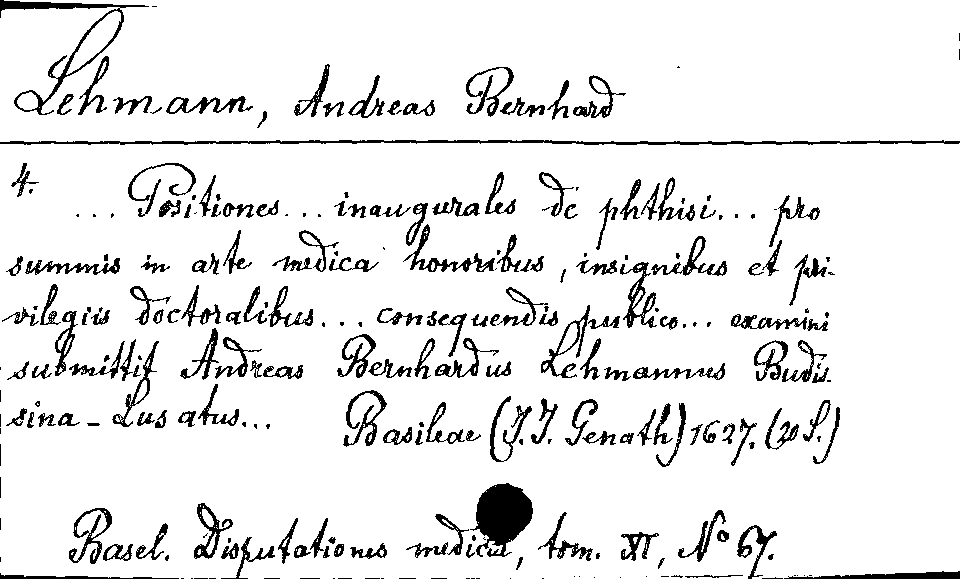 Lehmann, Andreas Bernhard
4.
... Positiones... inaugurales de phthisi... pro
summis in arte medica honoribus, insignibus et pri-
vilegiis doctoralibus... consequendis publico... examini
submittit Andreas Bernhardus Lehmannus Budis
sina-Lusatus... Basileae (J. J. Genath) 1627. (20 S.)
Basel. Disputationes medicae, tom. XI, No 67.